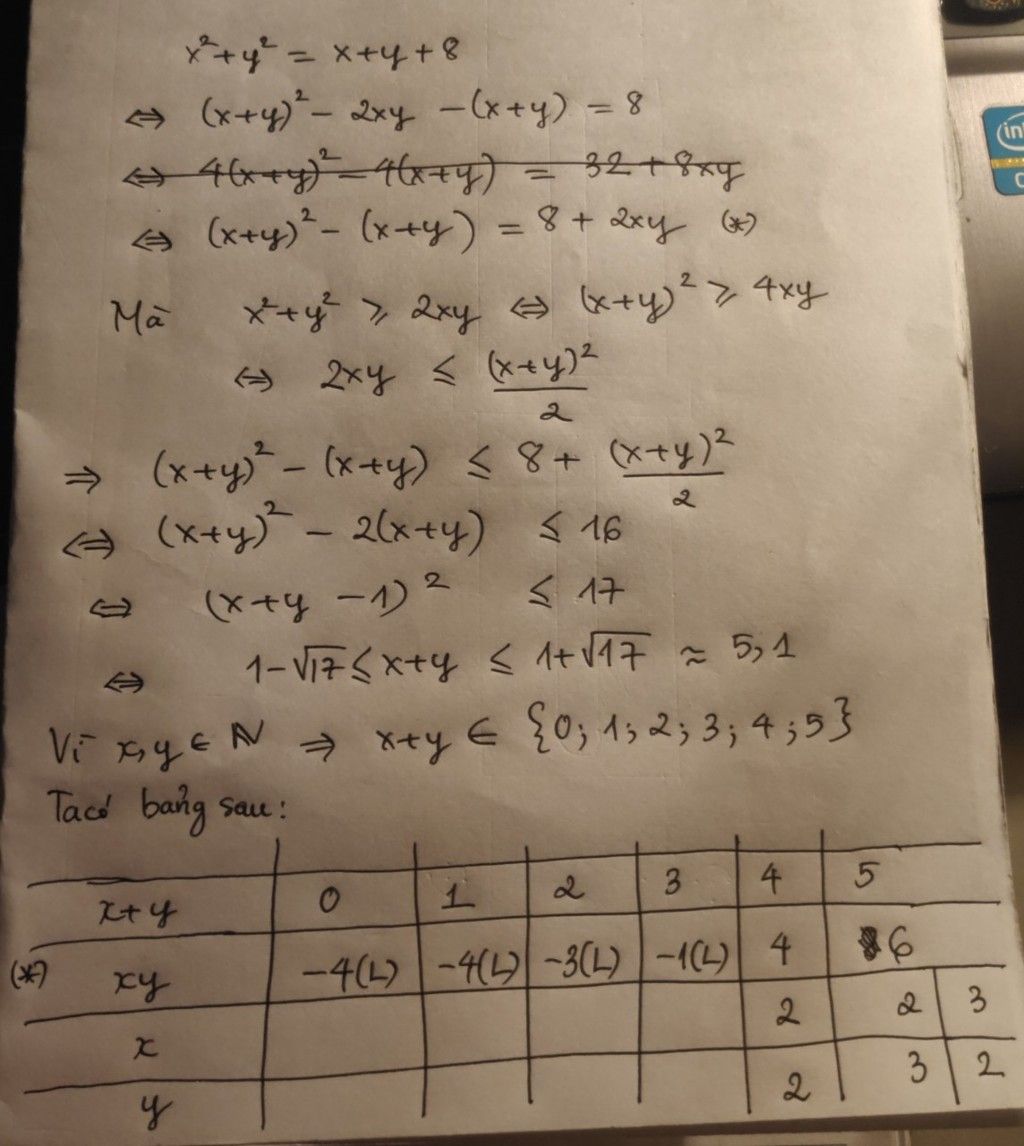 x² + y² = x + y + 8
⇔ (x+y)² - 2xy - (x+y) = 8
⇔ 4(x+y)² - 4(x+y) = 32 + 8xy
⇔ (x+y)² - (x+y) = 8 + 2xy (*)
Mà x² + y² ⩾ 2xy ⇔ (x+y)² ⩾ 4xy
⇔ 2xy ≤ (x+y)²/2
⇒ (x+y)² - (x+y) ≤ 8 + (x+y)²/2
⇔ (x+y)² - 2(x+y) ≤ 16
⇔ (x+y -1)² ≤ 17
⇔ 1-√17 ≤ x+y ≤ 1+√17 ≈ 5,1
Vì x,y ∈ ℕ ⇒ x+y ∈ {0; 1; 2; 3; 4; 5}
Ta có bảng sau:
x+y 0 1 2 3 4 5
(*) xy -4(L) -4(L) -3(L) -1(L) 4 6
x 2 2 3
y 2 3 2